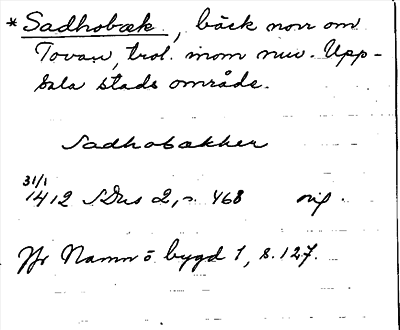 *Sadhobæk, bäck norr om
Tovan, trol. inom nuv. Upp-
sala stads område.
Sadhobækker
31/1
1412 SDns 2, 468 orig.
Jfr Namn o bygd 1, s. 127.